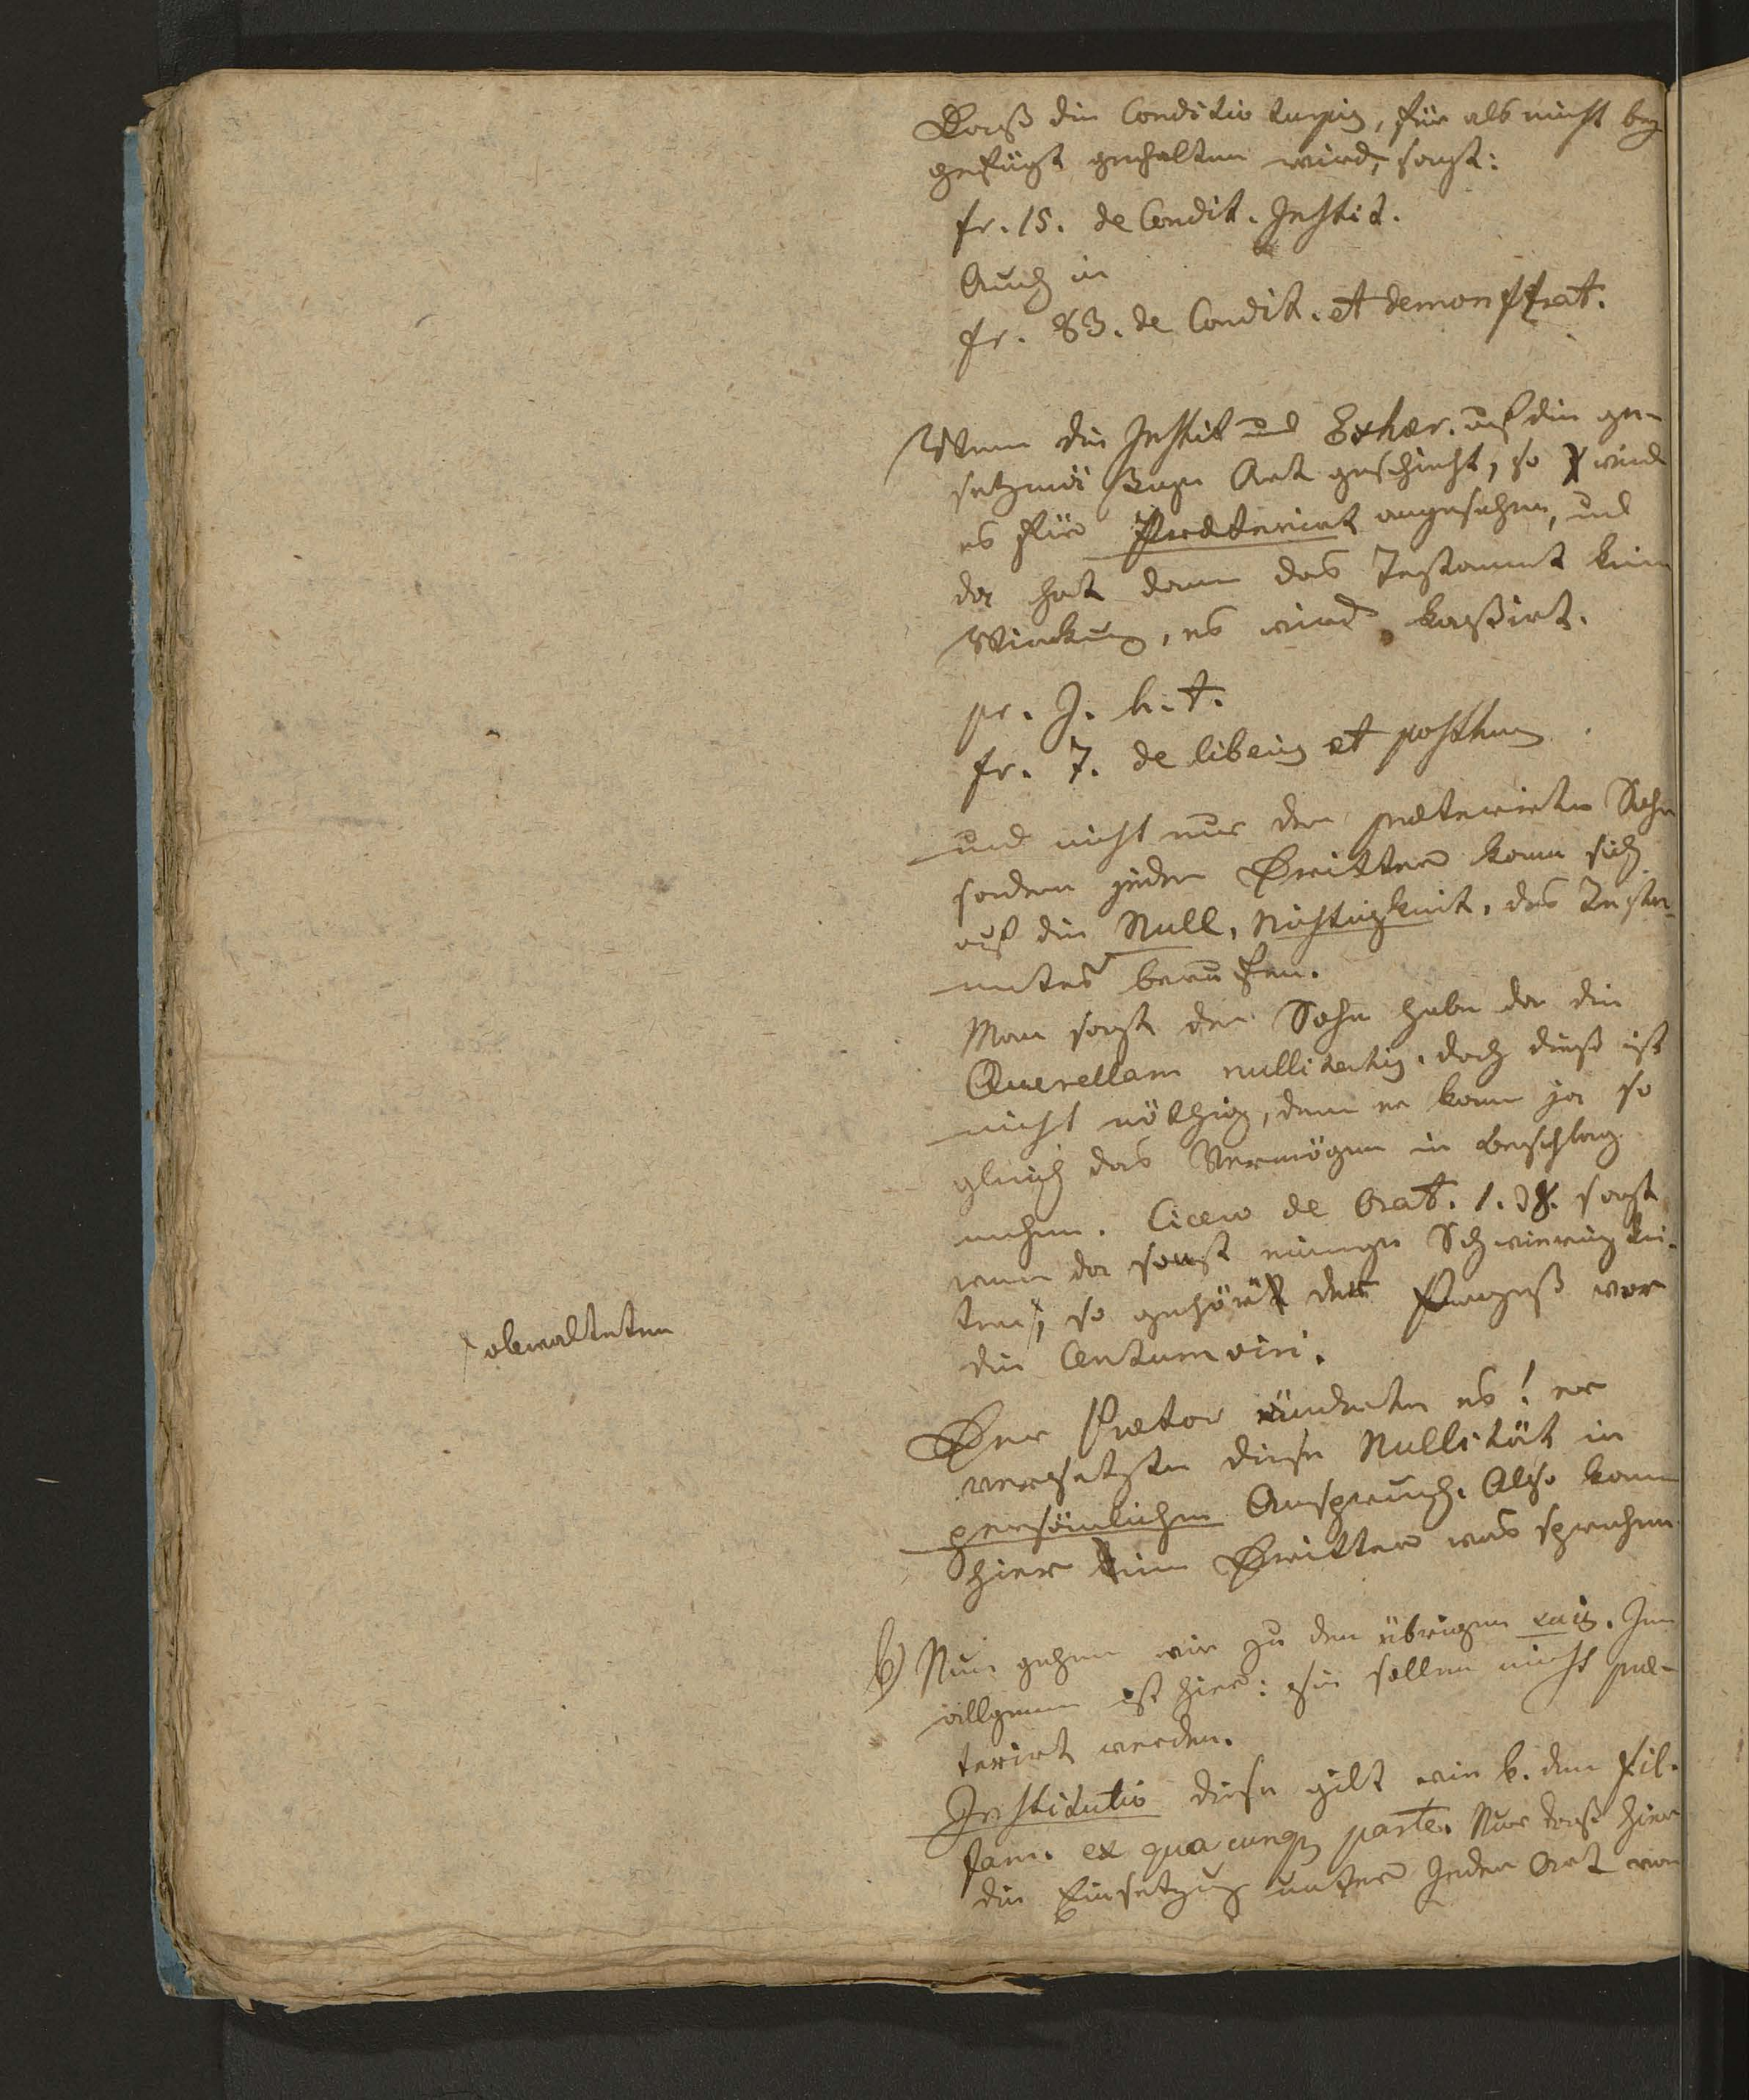 Daß die Conditio turpis, für als nicht bey
gefügt gehalten wird, sagt:
fr. 15. de Condit. Instit.
Auch in
fr. 83. de Condit. et demonstrat.
Wenn die Instit und Exhær. auf die ge-
setzmäßige Art geschieht, so wird
es für Præterirt angesehen, und
da hat dann das Testament keine
Wirkung, es wird kaßirt.
pr. J. h. t.
fr. 7. de liberis et posthum
und nicht nur der præterirte Sohn
sondern jeder Dritter kann sich
auf die Null, Nichtigkeit, des Testa-
mentes berufen.
Man sagt der Sohn habe da die
Querellam nullitatis. doch dieß ist
nicht nöthig, denn er kann ja so
gleich das Vermögen in Beschlag
nehmen. Cicero de Orat. 1. 38. sagt
wenn da sonst einige Schwierigkei-
ten, so gehört der Prozeß vor
die Centumviri.
obwalteten
Der Prætor änderte es! er
versetzte diese Nullität in
persönlichen Anspruch. Also kann
hier kein Dritter was sprechen
b) Nun gehen wir zu den übrigen suis. Im
allgemein ist hier: sie sollen nicht præ-
terirt werden.
Institutio diese gilt wie b. dem fil.
fam. ex quacunque parte. Nur daß hier
die Einsetzung unter jeder Art von